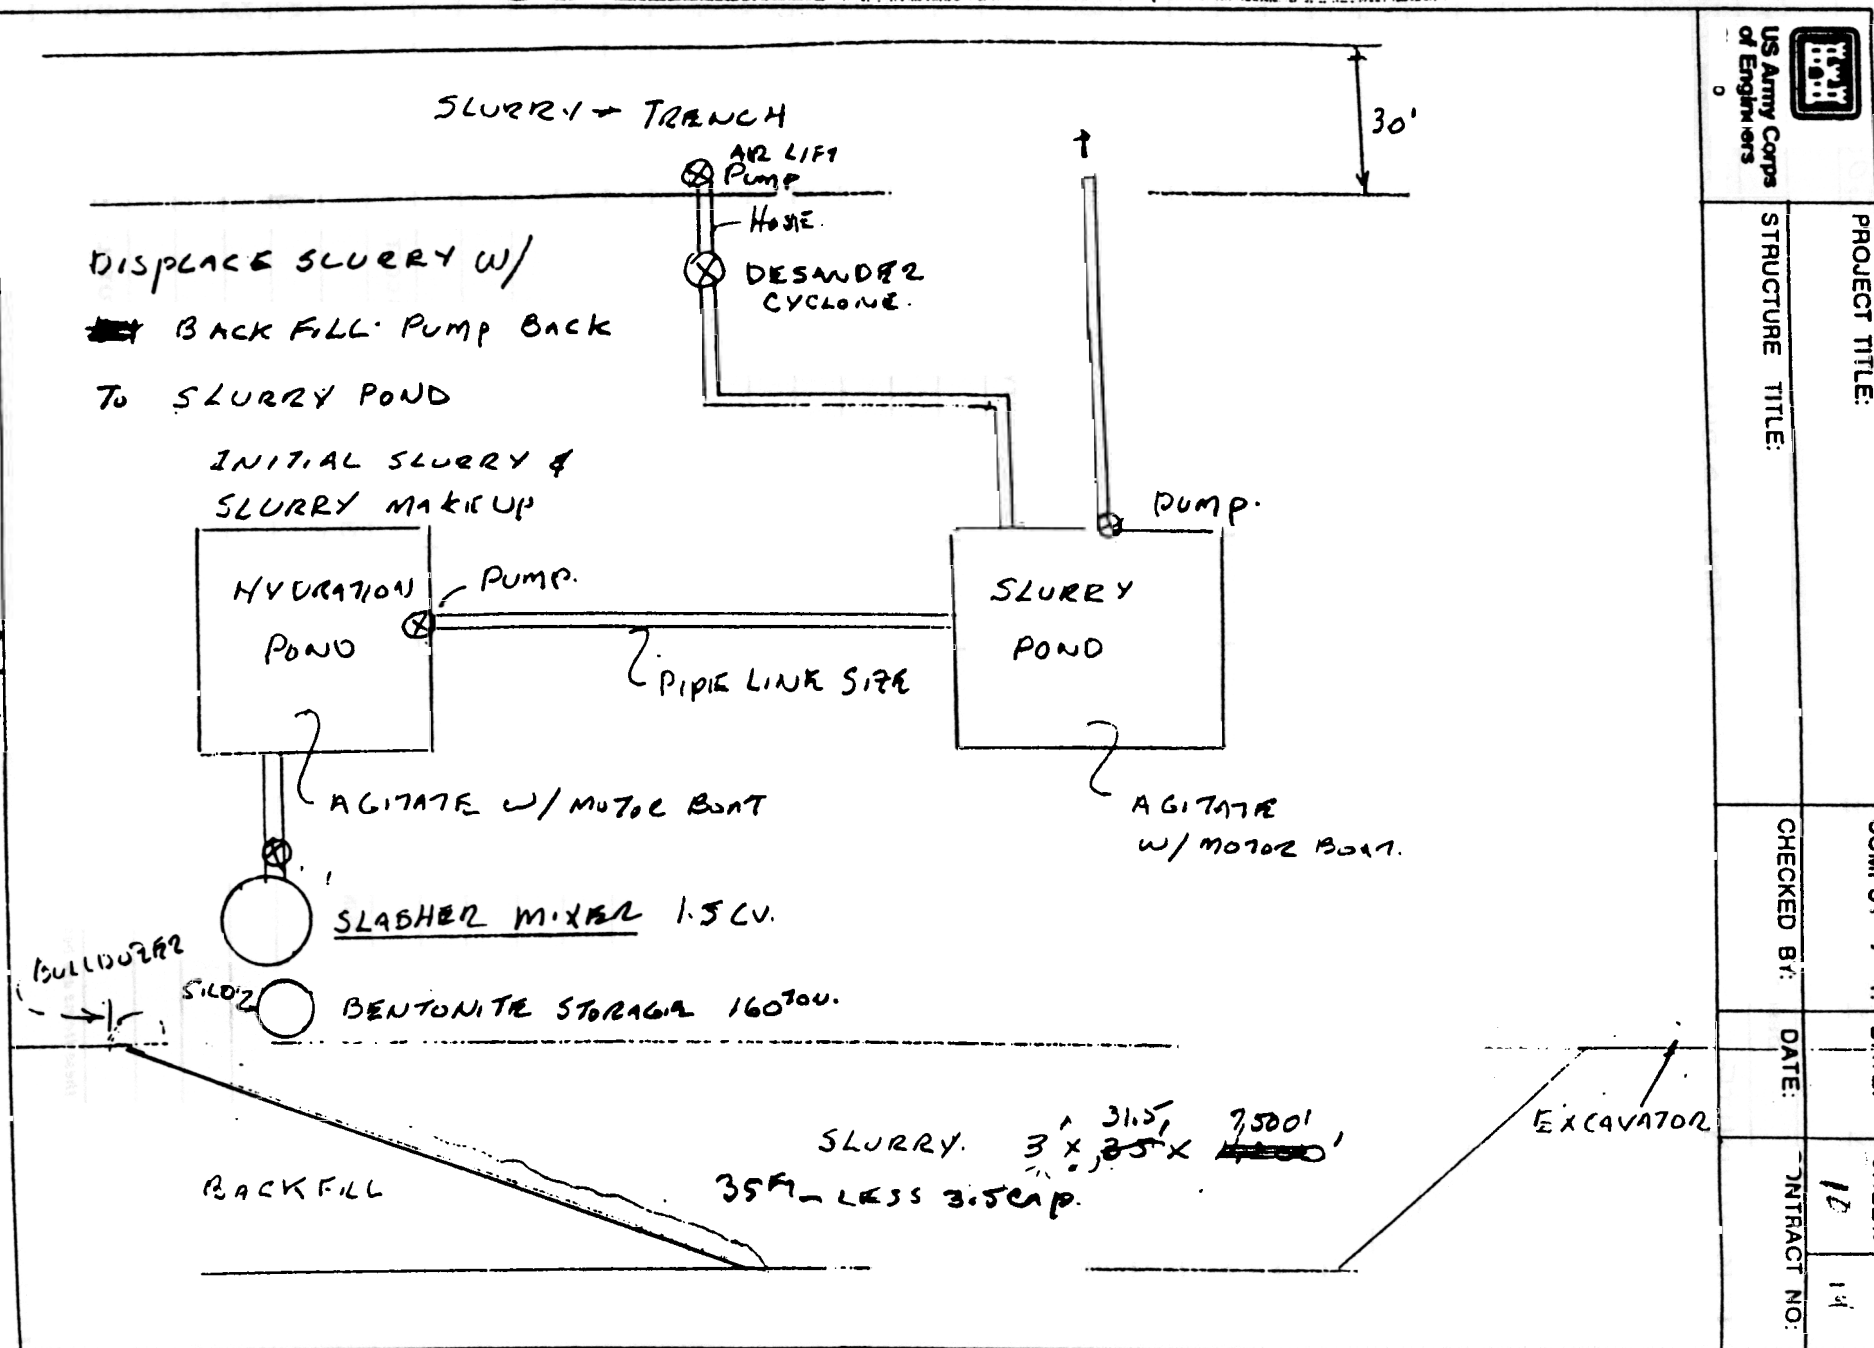 SLURRY - TRENCH
30'
AIR LIFT
PUMP
HOSE.
DISPLACE SLURRY W/
BACK FILL. PUMP BACK
TO SLURRY POND
DESANDER
CYCLONE.
INITIAL SLURRY &
SLURRY MAKEUP
PUMP.
HYDRATION
POND
PUMP.
PIPE LINE SIZE
SLURRY
POND
AGITATE W/ MOTOR BOAT
AGITATE
W/ MOTOR BOAT.
SLASHER MIXER 1.5 CY.
BULLDOZER
SILO'S
BENTONITE STORAGE 160 TON.
EXCAVATOR
SLURRY. 3' x 31.5' x 7,500'
35
35 FT - LESS 3.5 CAP.
BACKFILL
US Army Corps
of Engineers
PROJECT TITLE:
STRUCTURE TITLE:
CHECKED BY:
DATE:
CONTRACT NO:
10
14